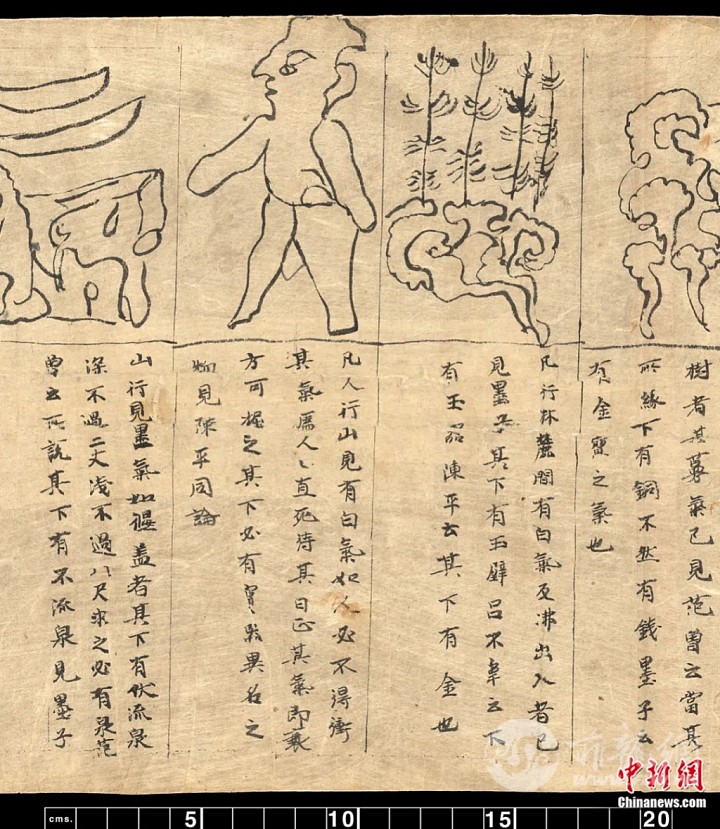 樹者其募氣已見范曾云當其
所緣下有銅不然有錢墨子云
有金寶之氣也
凡行林麓間有白氣及沸出入者已
見墨子其下有玉璧呂不韋云下
有玉器陳平云其下有金也
凡人行山見有白氣如人必不得衝
其氣為人〻直死待其日正其氣即衰
方可掘之其下必有寶異名之
物見陳平同論
山行見墨氣如偃盖者其下有伏流泉
深不過二丈淺不過八尺求之必有泉范
曾云所說其下有不流泉見墨子
中新网
Chinanews.com
cms. 5 10 15 20